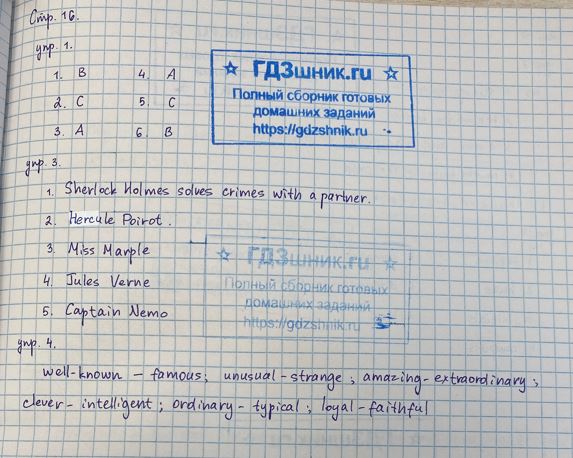 Стр. 16.
упр. 1.
1. B 4. A
2. C 5. C
3. A 6. B
☆ ГДЗшник.ru ☆
Полный сборник готовых
домашних заданий
https://gdzshnik.ru
упр. 3.
1. Sherlock Holmes solves crimes with a partner.
2. Hercule Poirot.
3. Miss Marple
4. Jules Verne
5. Captain Nemo
☆ ГДЗшник.ru ☆
Полный сборник готовых
домашних заданий
https://gdzshnik.ru
упр. 4.
well-known – famous; unusual - strange; amazing - extraordinary;
clever - intelligent; ordinary - typical; loyal - faithful